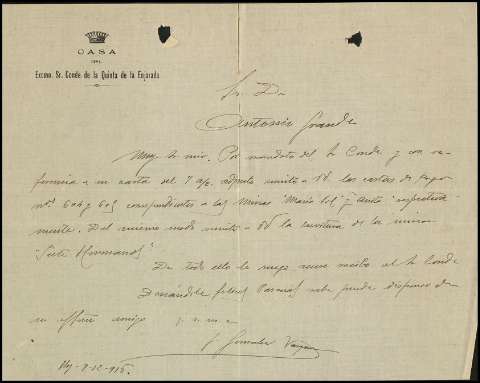 CASA
DEL
Excmo. Sr. Conde de la Quinta de la Enjarada
Sr. Dn
Antonio Grande
Muy Sr mio. Por mandato del Sr Conde y con re-
ferencia a su carta del 7 a/c. adjunto remito a Vd. las cartas de pago
nos. 604 y 605 correspondientes a las Minas "Maria
mente. Del mismo modo remito a Vd la escritura de la mina
"Siete Hermanos".
De todo ello le ruego acuse recibo al Sr Conde
Deseándole felices Pascuas sabe puede disponer de
su affmo amigo q. s. m. e
J. Gonzalez
9-12-915.